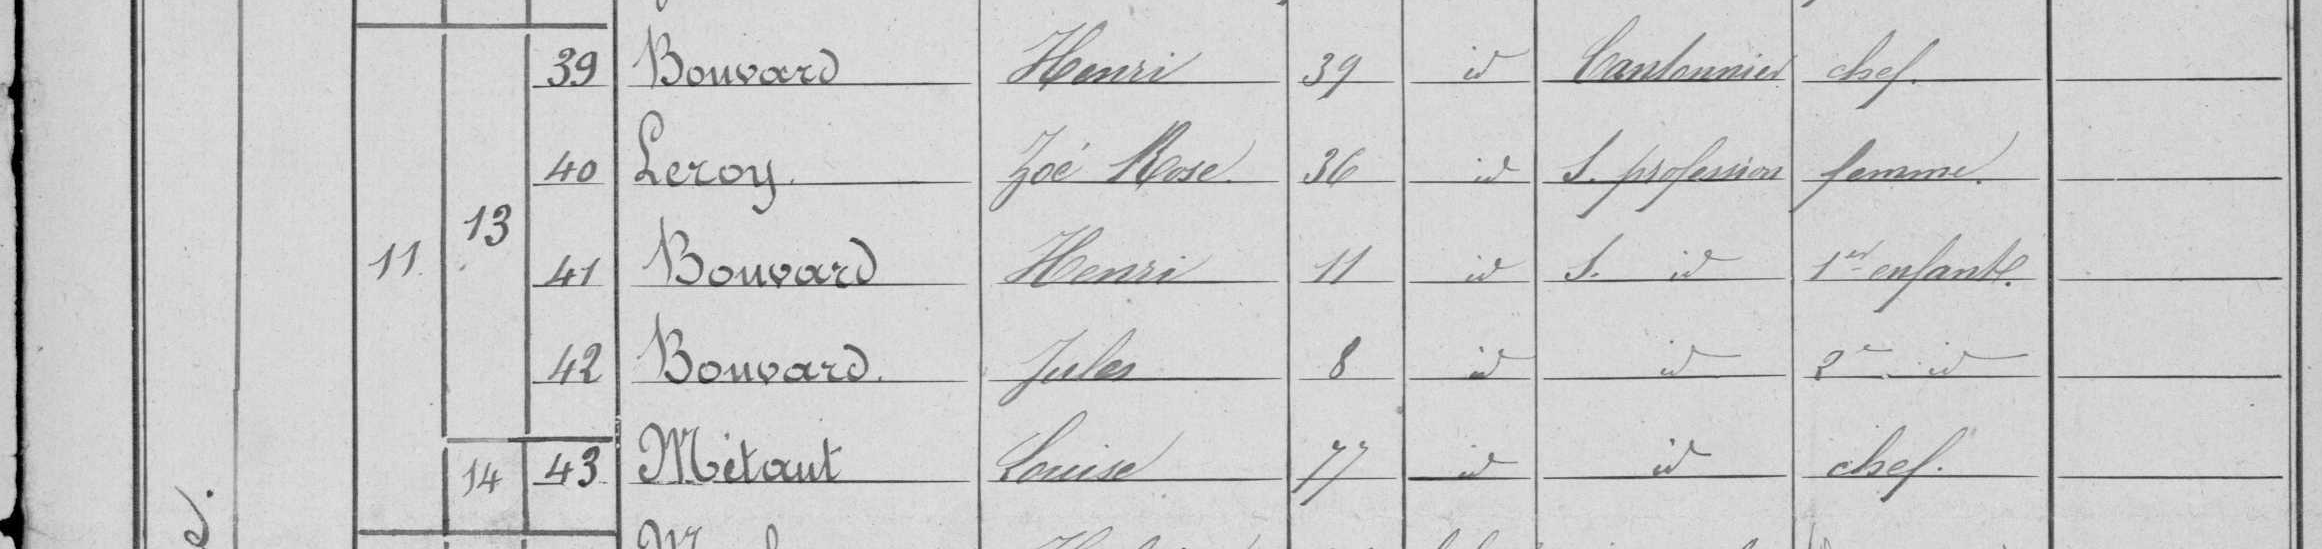 39 Bouvard Henri 39 id Cantonnier chef.
40 Leroy. Zoé Rose. 36 id S. profession femme.
11 13 41 Bouvard Henri 11 id S. id 1er enfant.
42 Bouvard. Jules 8 id id 2e id
14 43 Métaut Louise 77 id id chef.